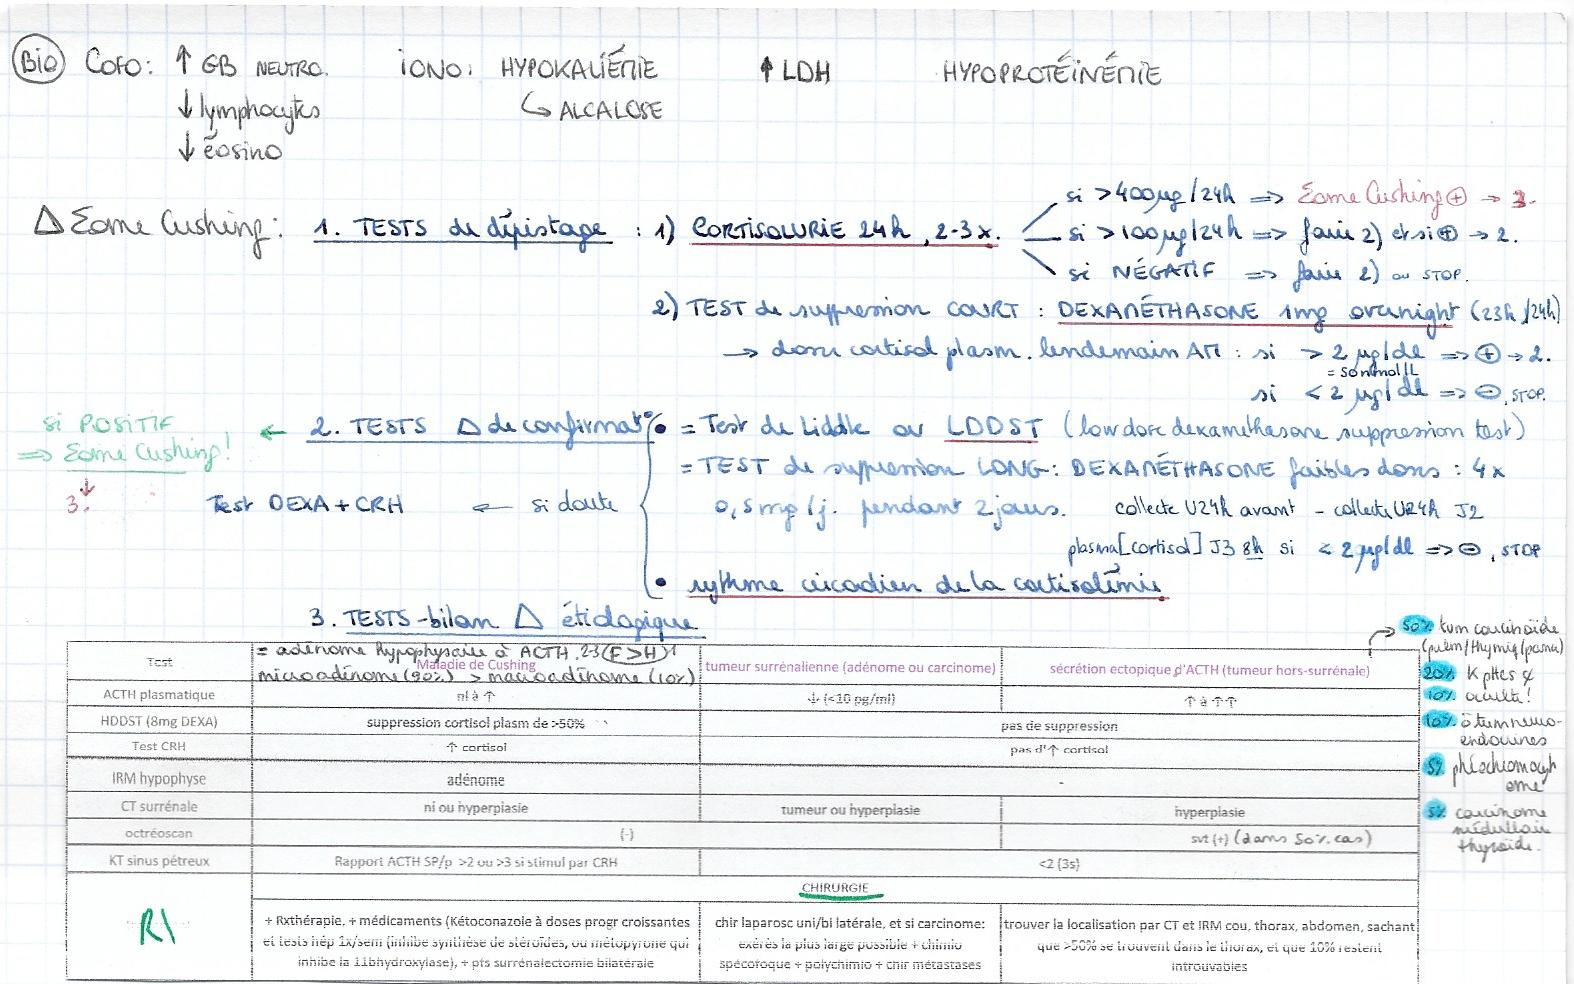 Bio COFO: ↑ GB NEUTRO. iONO: HYPOKALIÉMIE ↑ LDH HYPOPROTÉINÉMIE
↓ lymphocytes ↳ ALCALOSE
↓ éosino
si > 400µg/24h => Σome Cushing ⊕ → 3.
Δ Σome Cushing: 1. TESTS de dépistage : 1) CORTISOLURIE 24h, 2-3x. si > 100µg/24h => faire 2) et si ⊕ → 2.
si NÉGATIF => faire 2) ou STOP.
2) TEST de suppression COURT : DEXAMÉTHASONE 1mg overnight (23h/24h)
→ doser cortisol plasm. lendemain AM : si > 2 µg/dl => ⊕ → 2.
= 50nmol/L
si < 2 µg/dl => ⊖, STOP.
si POSITIF ← 2. TESTS Δ de confirmat° • = Test de Liddle ou LDDST (low dose dexamethasone suppression test)
=> Σome Cushing! = TEST de suppression LONG: DEXAMÉTHASONE faibles doses : 4x
3. Test DEXA + CRH ← si doute 0,5mg/j. pendant 2 jours. collecte U24h avant - collecte U24h J2
plasma [cortisol] J3 8h si < 2 µg/dl => ⊖, STOP
• rythme circadien de la cortisolémie
3. TESTS-bilan Δ étiologique
= adénome hypophysaire à ACTH, (F>H)
Test Maladie de Cushing tumeur surrénalienne (adénome ou carcinome) sécrétion ectopique d'ACTH (tumeur hors-surrénale)
microadénome (90%) > macroadénome (10%)
ACTH plasmatique nl à ↑ ↓ (<10 pg/ml) ↑ à ↑↑
HDDST (8mg DEXA) suppression cortisol plasm de >50% pas de suppression
Test CRH ↑ cortisol pas d'↑ cortisol
IRM hypophyse adénome -
CT surrénale nl ou hyperplasie tumeur ou hyperplasie hyperplasie
octréoscan (-) svt (+) (dans 50% cas)
KT sinus pétreux Rapport ACTH SP/p >2 ou >3 si stimul par CRH <2 (3s)
CHIRURGIE
R/
+ Rxthérapie, + médicaments (Kétoconazole à doses progr croissantes
et tests hép 1x/sem (inhibe synthèse de stéroïdes, ou métopyrone qui
inhibe la 11bhydroxylase), + pfs surrénalectomie bilatérale
chir laparosc uni/bi latérale, et si carcinome:
exérès la plus large possible + chimio
spécofoque + polychimio + chir métastases
trouver la localisation par CT et IRM cou, thorax, abdomen, sachant
que >50% se trouvent dans le thorax, et que 10% restent
introuvables
50% tum carcinoïde
(pulm/thymiq/
20% K
10% occulte!
10% tum neuro-
endocrines
5% phéochromocyt
ome
5% carcinome
médullaire
thyroïde.